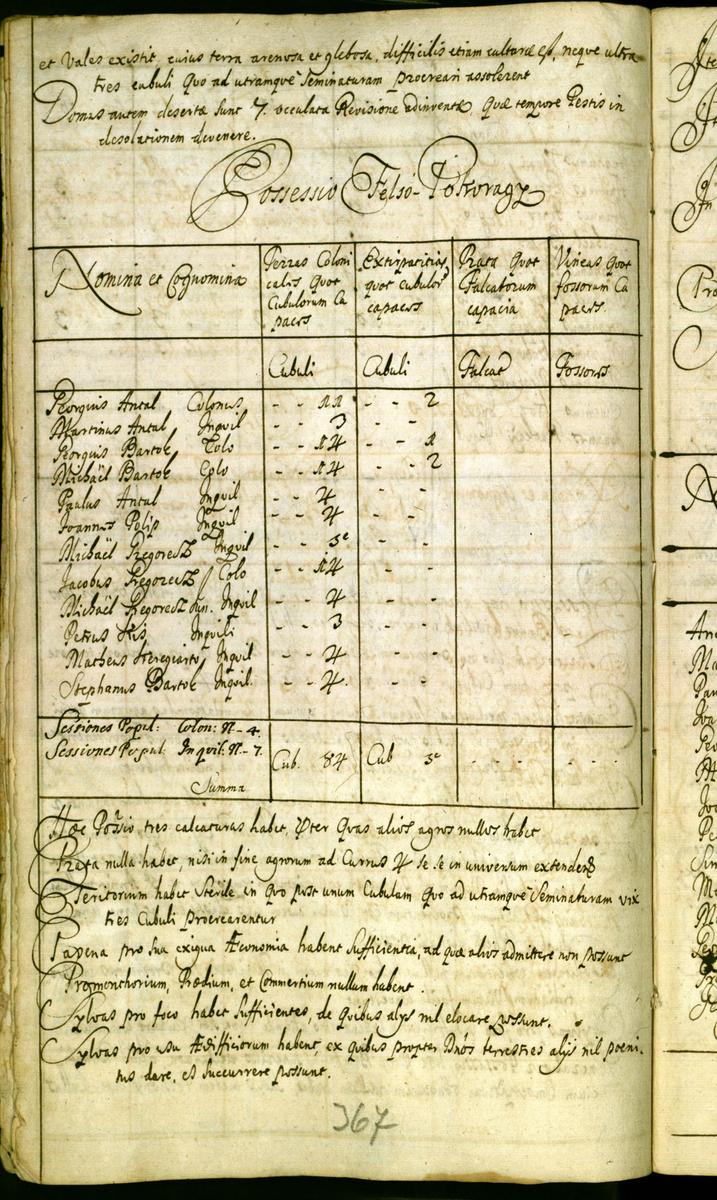 et Vales existit cuius terra arenosa et glebosa, difficilis etiam culturæ est, neque ultra
tres cubuli quo ad utramque Seminaturam procreari assolerent
Domus autem desertæ sunt 7. occulata Revisione adinventæ, quæ tempore Pestis in
desolationem devenere.
Possessio Felsö-Potkoragy
Nomina et Cognomina
Terras Coloni
cales quot
Cubulorum Ca
paces
Extirpatitias
quot cubulor
capaces
Prata quot
Falcatorum
capacia
Vineas quot
fossorum Ca
paces
Cubuli Cubuli Falcat Fossores
Georgius Antal Colonus - - 11 - - 2
Martinus Antal Inquil - - 3 - -
Georgius Bartok Colo - - 14 - - 1
Michaël Bartok Colo - - 14 - - 2
Paulus Antal Inquil - - 4 - -
Joannes Polip Inquil - - 4 - -
Michaël Gregorecz Inquil - - 5 - -
Jacobus Gregorecz Colo - - 14 - -
Michaël Gregorecz Jun. Inquil - - 4 - -
Petrus Kis Inquili - - 3 - -
Matheus Inquil - - 4 - -
Stephanus Bartok Inquil. - - 4. - -
Sessiones Popul: Colon: N- 4.
Sessiones Popul: Inquil: N- 7.
Summa Cub. 84 Cub 5 - - - - - -
Hæc Possio tres calcaturas habet, Præter quas alios agros nullos habet
Prata nulla habet, nisi in fine agrorum ad Currus 4 se se in universum extendens
Teritorium habet sterile in quo post unum Cubulum quo ad utramque Seminaturam vix
tres Cubuli procrearentur
Papena pro sua exigua Æconomia habent sufficientia, ad quæ alios admittere non possunt
Promonthorium, Prædium, et Commertium nullum habent.
Sylvas pro foco habet sufficientes, de quibus alys nil elocare possunt.
Sylvas pro usu Ædifficiorum habent, ex quibus propter Dnos terrestres alys nil poeni-
tus dare, et succurrere possunt.
367